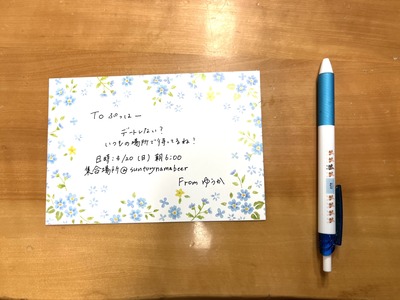 To ぷっはー
デートしない?
いつもの場所で待ってるね!
日時:4/20(日)朝6:00
集合場所@suntorynamabeer
From ゆうか